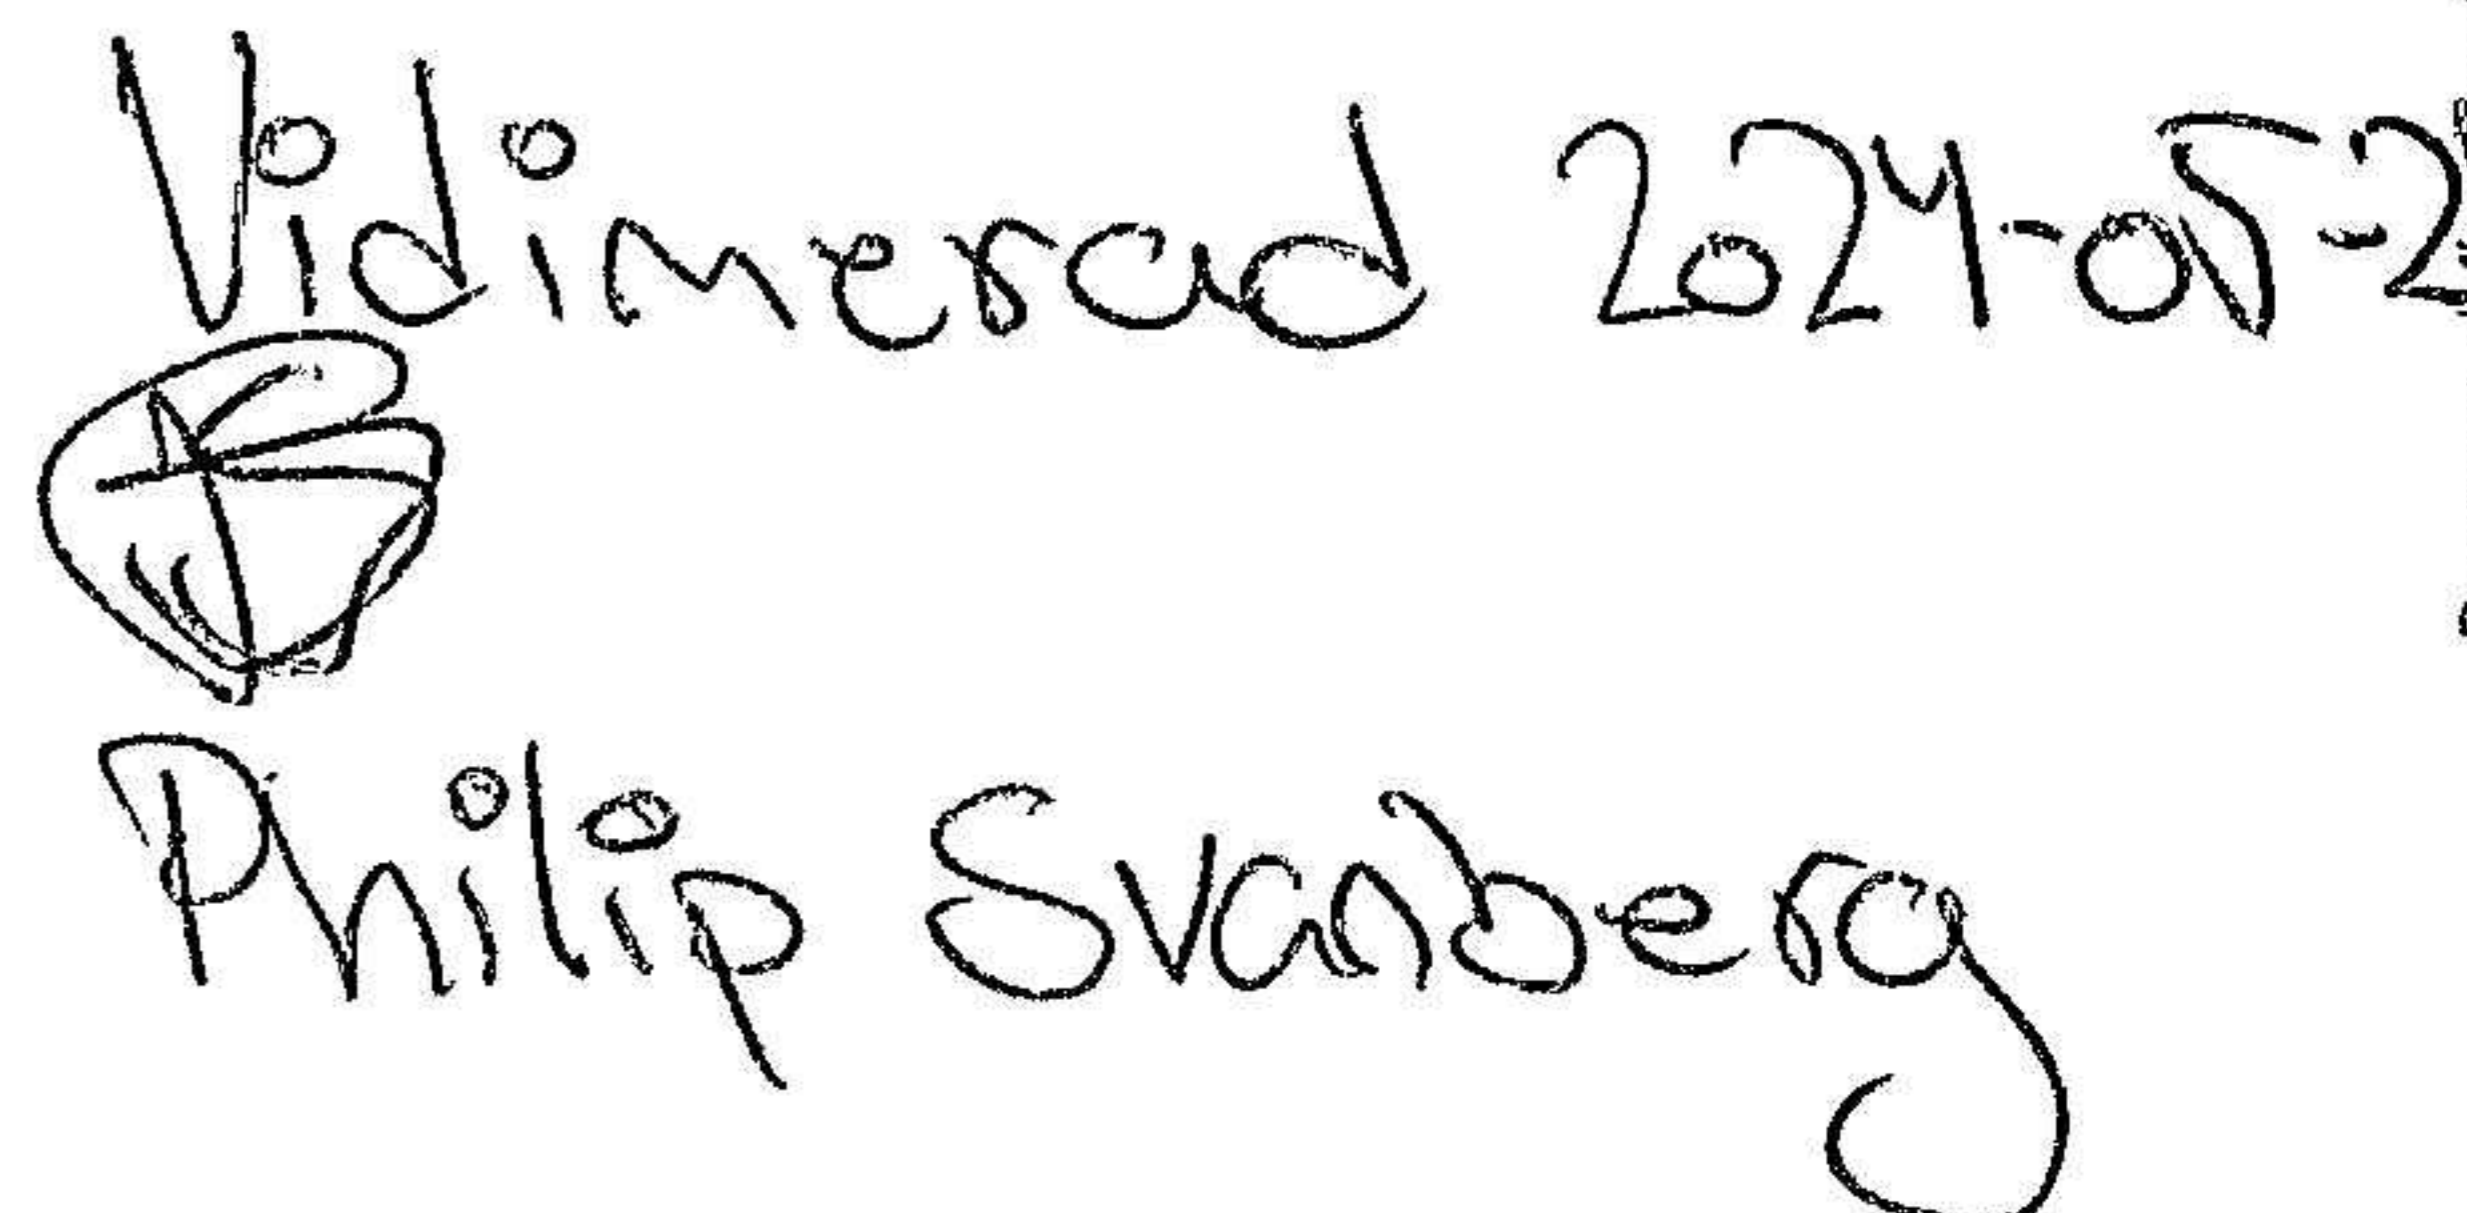 Vidimerad 2024-05-2
Philip Svanberg